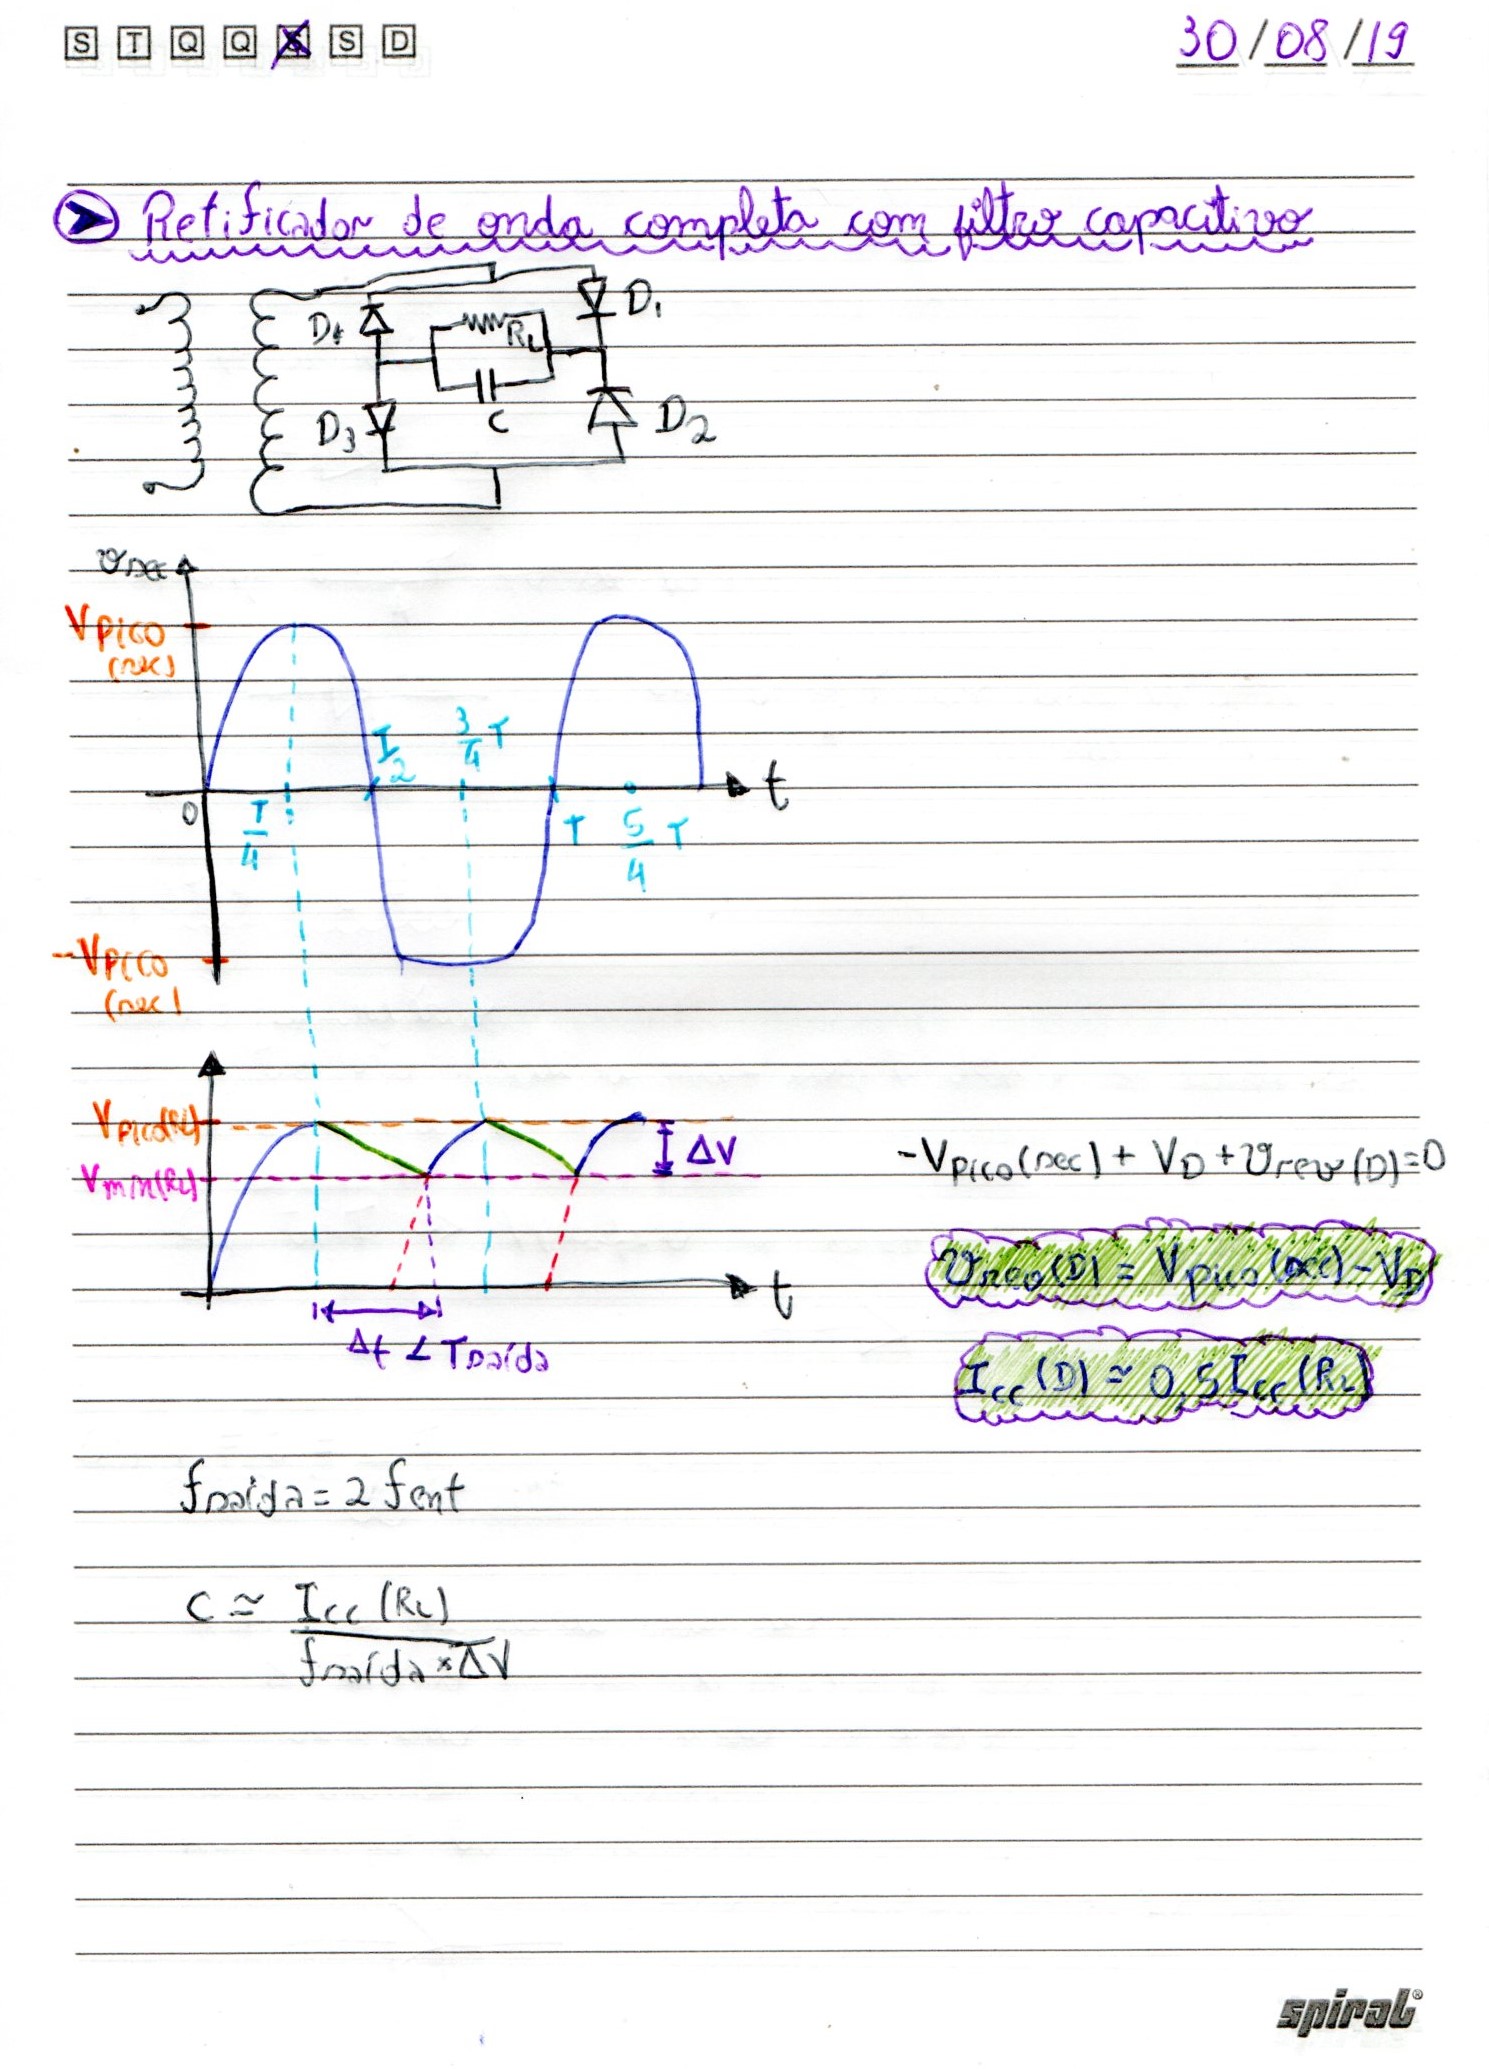 S T Q Q S S D
30/08/19
Retificador de onda completa com filtro capacitivo
D4 RL D1
D3 C D2
vsec
Vpico
(sec)
T/2 3/4 T
t
0 T/4 T 5/4 T
-Vpico
(sec)
Vpico(RL)
ΔV
-Vpico(sec) + VD + vrev(D)=0
Vmin(RL)
vrev(D) = Vpico(sec) - VD
t
Δt < Tsaída
Icc(D) ≃ 0,5 Icc(RL)
fsaída = 2 fent
C ≃ Icc (RL)
fsaída × ΔV
spiral®